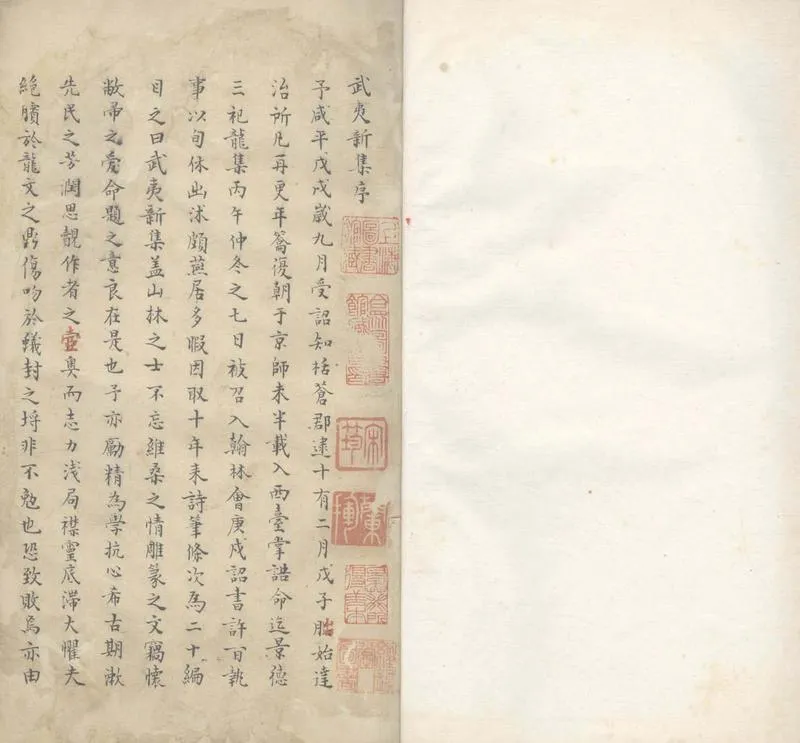 武夷新集序
予咸平戊戌歲九月受詔知栝蒼郡逮十有二月戊子朏始達
治所凡再更年籥復朝于京師未半載入西臺掌誥命迄景德
三祀龍集丙午仲冬之七日被召入翰林會庚戌詔書許百執
事以旬休出沭頗燕居多暇因取十年来詩筆條次為二十編
目之曰武夷新集盖山林之士不忘維桑之情雕篆之文竊懷
敝帚之愛命題之意良在是也予亦勵精為學抗心希古期漱
先民之芳潤思覩作者之壼奥而志力淺局襟靈底滯大懼夫
絶臏於龍文之鼎傷吻於蟻封之埒非不勉也恐致敗焉亦由
宋筠
蘭揮